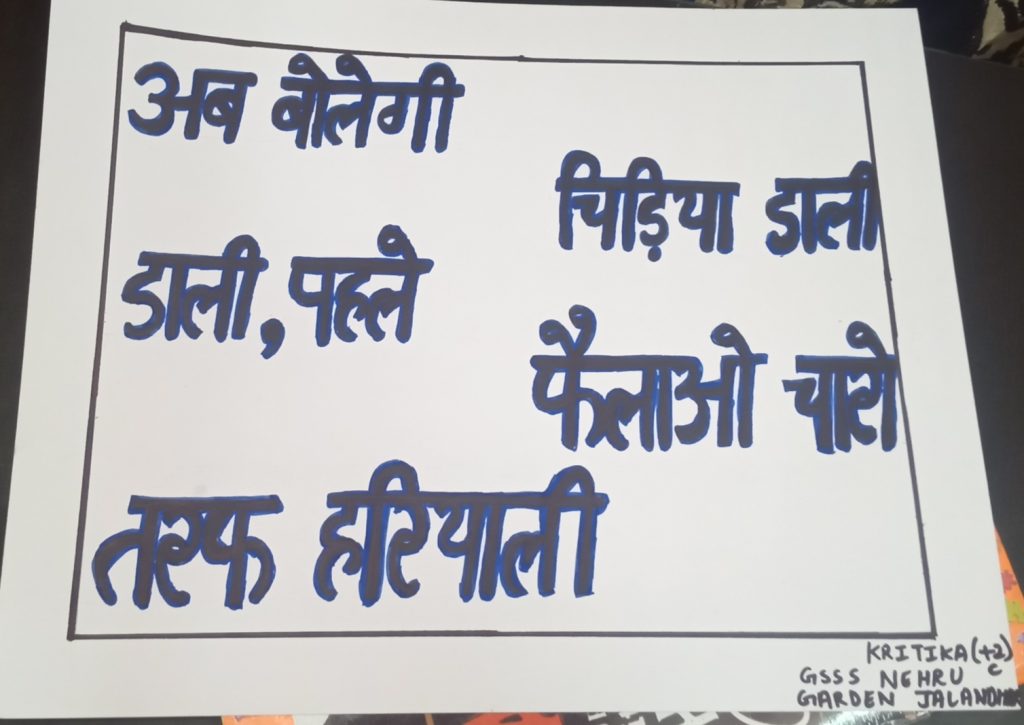 अब बोलेगी
चिड़िया डाली
डाली, पहले
फैलाओ चारो
तरफ हरियाली
KRITIKA (+2)
C
GSSS NEHRU
GARDEN JALANDHAR